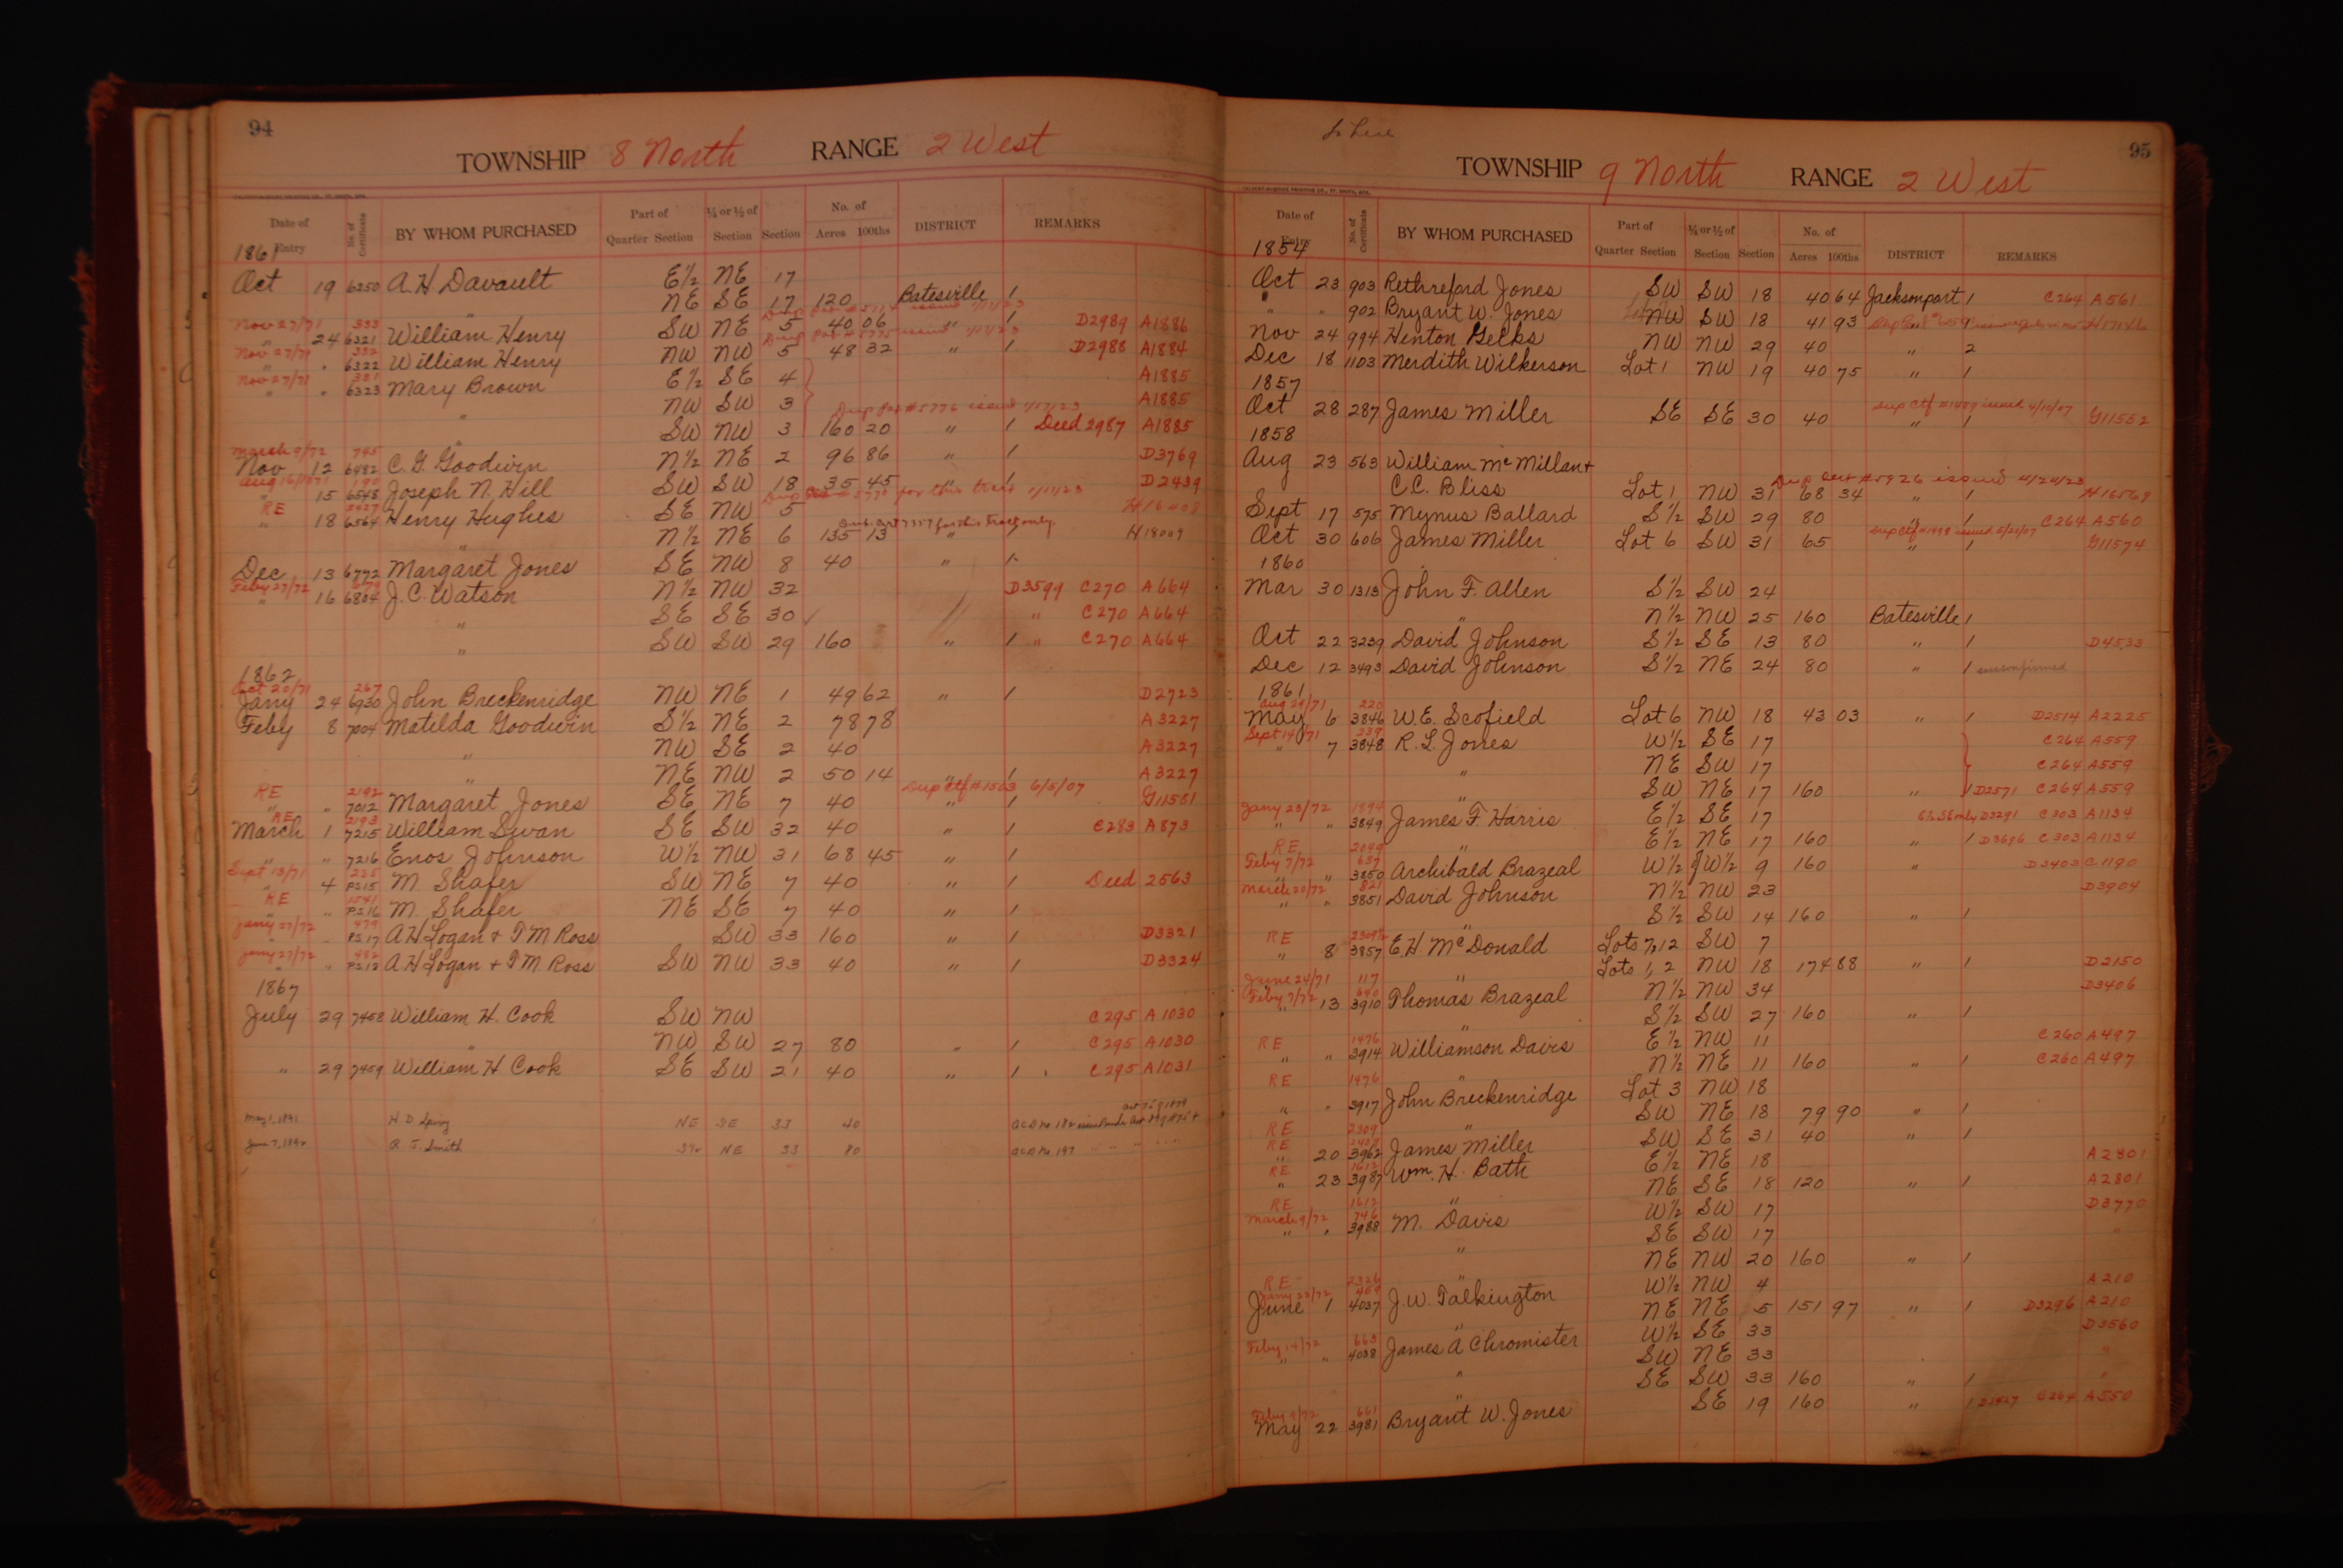 94
TOWNSHIP 8 North RANGE 2 West
Date of Entry No. of Certificate BY WHOM PURCHASED Part of Quarter Section ¼ or ½ of Section Section No. of Acres 100ths DISTRICT REMARKS
1861
Oct 19 6250 A. H. Davault E½ NE 17
" NE SE 17 120 Batesville 1
Nov 27/71 333
" 24 6321 William Henry SW NE 5 40 06 " 1 D2989 A1886
Nov 27/71 332
" " 6322 William Henry NW NW 5 48 32 " 1 D2988 A1884
Nov 27/71 331
" " 6323 Mary Brown E½ SE 4 A1885
" NW SW 3 A1885
Dup Pat # 5776 issued 1/17/23
" SW NW 3 160 20 " 1 Deed 2987 A1885
March 9/72 745
Nov 12 6482 C. G. Goodwin N½ NE 2 96 86 " 1 D3769
Aug 16/1871 190
" 15 6548 Joseph N. Hill SW SW 18 35 45 " 1 D2439
RE 2427
" 18 6564 Henry Hughes SE NW 5
" N½ NE 6 135 13 " 1 H18009
Dec 13 6772 Margaret Jones SE NW 8 40 " 1
Feby 27/72
" 16 6804 J. C. Watson N½ NW 32 D3599 C270 A664
" SE SE 30 " C270 A664
" SW SW 29 160 " 1 " C270 A664
1862
Oct 20/71 267
Jany 24 6930 John Breckenridge NW NE 1 49 62 " 1 D2723
Feby 8 7004 Matilda Goodwin S½ NE 2 78 78 A3227
" NW SE 2 40 A3227
" NE NW 2 50 14 " 1 A3227
RE 2192 Dup Ctf # 1503 6/5/07
" " 7012 Margaret Jones SE NE 7 40 " 1 G11581
RE 2193
March 1 7215 William Swan SE SW 32 40 " 1 C283 A873
" " 7216 Enos Johnson W½ NW 31 68 45 " 1
Sept 13/71 225
" 4 PS15 M. Shafer SW NE 7 40 " 1 Deed 2563
RE 1541
" " PS16 M. Shafer NE SE 7 40 " 1
Jany 27/72 479
" " PS17 A H Logan + T M Ross SW 33 160 " 1 D3321
Jany 27/72 482
" " PS18 A H Logan + T M Ross SW NW 33 40 " 1 D3324
1867
July 29 7458 William H. Cook SW NW C295 A1030
" NW SW 27 80 " 1 C295 A1030
" 29 7459 William H Cook SE SW 21 40 " 1 C295 A1031
May 1, 1891 H. D. Spivy NE SE 33 40
June 7, 1892 R. J. Smith NE 33 80
95
TOWNSHIP 9 North RANGE 2 West
Date of Entry No. of Certificate BY WHOM PURCHASED Part of Quarter Section ¼ or ½ of Section Section No. of Acres 100ths DISTRICT REMARKS
1854
Oct 23 903 Rethreford Jones SW SW 18 40 64 Jacksonport 1 C264 A561
" " 902 Bryant W. Jones NW SW 18 41 93 " 1
Nov 24 994 Henton Gelks NW NW 29 40 " 2
Dec 18 1103 Merdith Wilkerson Lot 1 NW 19 40 75 " 1
1857
Oct 28 287 James Miller SE SE 30 40 " 1 G11552
1858
Aug 23 563 William McMillan +
C.C. Bliss Lot 1 NW 31 68 34 " 1 H16569
Sept 17 575 Mynus Ballard S½ SW 29 80 " 1 C264 A560
Oct 30 606 James Miller Lot 6 SW 31 65 " 1 G11574
1860
Mar 30 1313 John F. Allen S½ SW 24
" N½ NW 25 160 Batesville 1
Oct 22 3239 David Johnson S½ SE 13 80 " 1 D4533
Dec 12 3493 David Johnson S½ NE 24 80 " 1 unconfirmed
1861
Aug 29/71 220
May 6 3846 W. E. Scofield Lot 6 NW 18 43 03 " 1 D2514 A2225
Sept 14/71 239
" 7 3848 R. L. Jones W½ SE 17 C264 A559
" NE SW 17 C264 A559
" SW NE 17 160 " 1 D2571 C264 A559
Jany 23/72 1894
" " 3849 James F. Harris E½ SE 17 C303 A1134
" E½ NE 17 160 " 1 D3696 C303 A1134
RE 2049
Feby 7/72 637
" " 3850 Archibald Brazeal W½ of W½ 9 160 " D3403 C1190
March 20/72 821
" " 3851 David Johnson N½ NW 23 D3904
" S½ SW 14 160 " 1
RE
" 8 3857 E. H. McDonald Lots 7, 12 SW 7
" Lots 1, 2 NW 18 174 88 " 1 D2150
June 24/71 117
Feby 7/72 640
" 13 3910 Thomas Brazeal N½ NW 34 D3406
" S½ SW 27 160 " 1
RE 1476
" " 3914 Williamson Davis E½ NW 11 C260 A497
" N½ NE 11 160 " 1 C260 A497
RE 1476
" " 3917 John Breckenridge Lot 3 NW 18
" SW NE 18 79 90 " 1
RE 2309
RE
" 20 3962 James Miller SW SE 31 40 " 1
RE 1612
" 23 3987 Wm. H. Bath E½ NE 18 A2801
" NE SE 18 120 " 1 A2801
RE 1612
March 9/72 746
" " 3988 M. Davis W½ SW 17 D3770
" SE SW 17 "
" NE NW 20 160 " 1
RE 2326
Jany 23/72
June 1 4037 J. W. Talkington W½ NW 4 A210
" NE NE 5 151 97 " 1 D3296 A210
Feby 14/72 663
" " 4038 James A Chromister W½ SE 33 D3560
" SW NE 33 "
" SE SW 33 160 " 1 "
Feby 9/72 661
May 22 3981 Bryant W. Jones SE 19 160 " 1 C264 A550